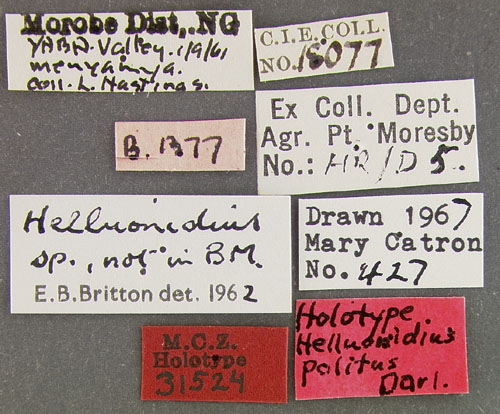 Morobe Dist., NG
YABA-Valley. 1/9/61
menyamya.
coll. L. Hastings.
C.I.E. COLL.
NO. 18077
B. 1377
Ex Coll. Dept.
Agr. Pt. Moresby
No.: HR/D 5.
Helluonidius
sp., not in BM.
E.B.Britton det. 1962
Drawn 1967
Mary Catron
No. 427
M.C.Z.
Holotype
31524
Holotype.
Helluonidius
politus
Darl.